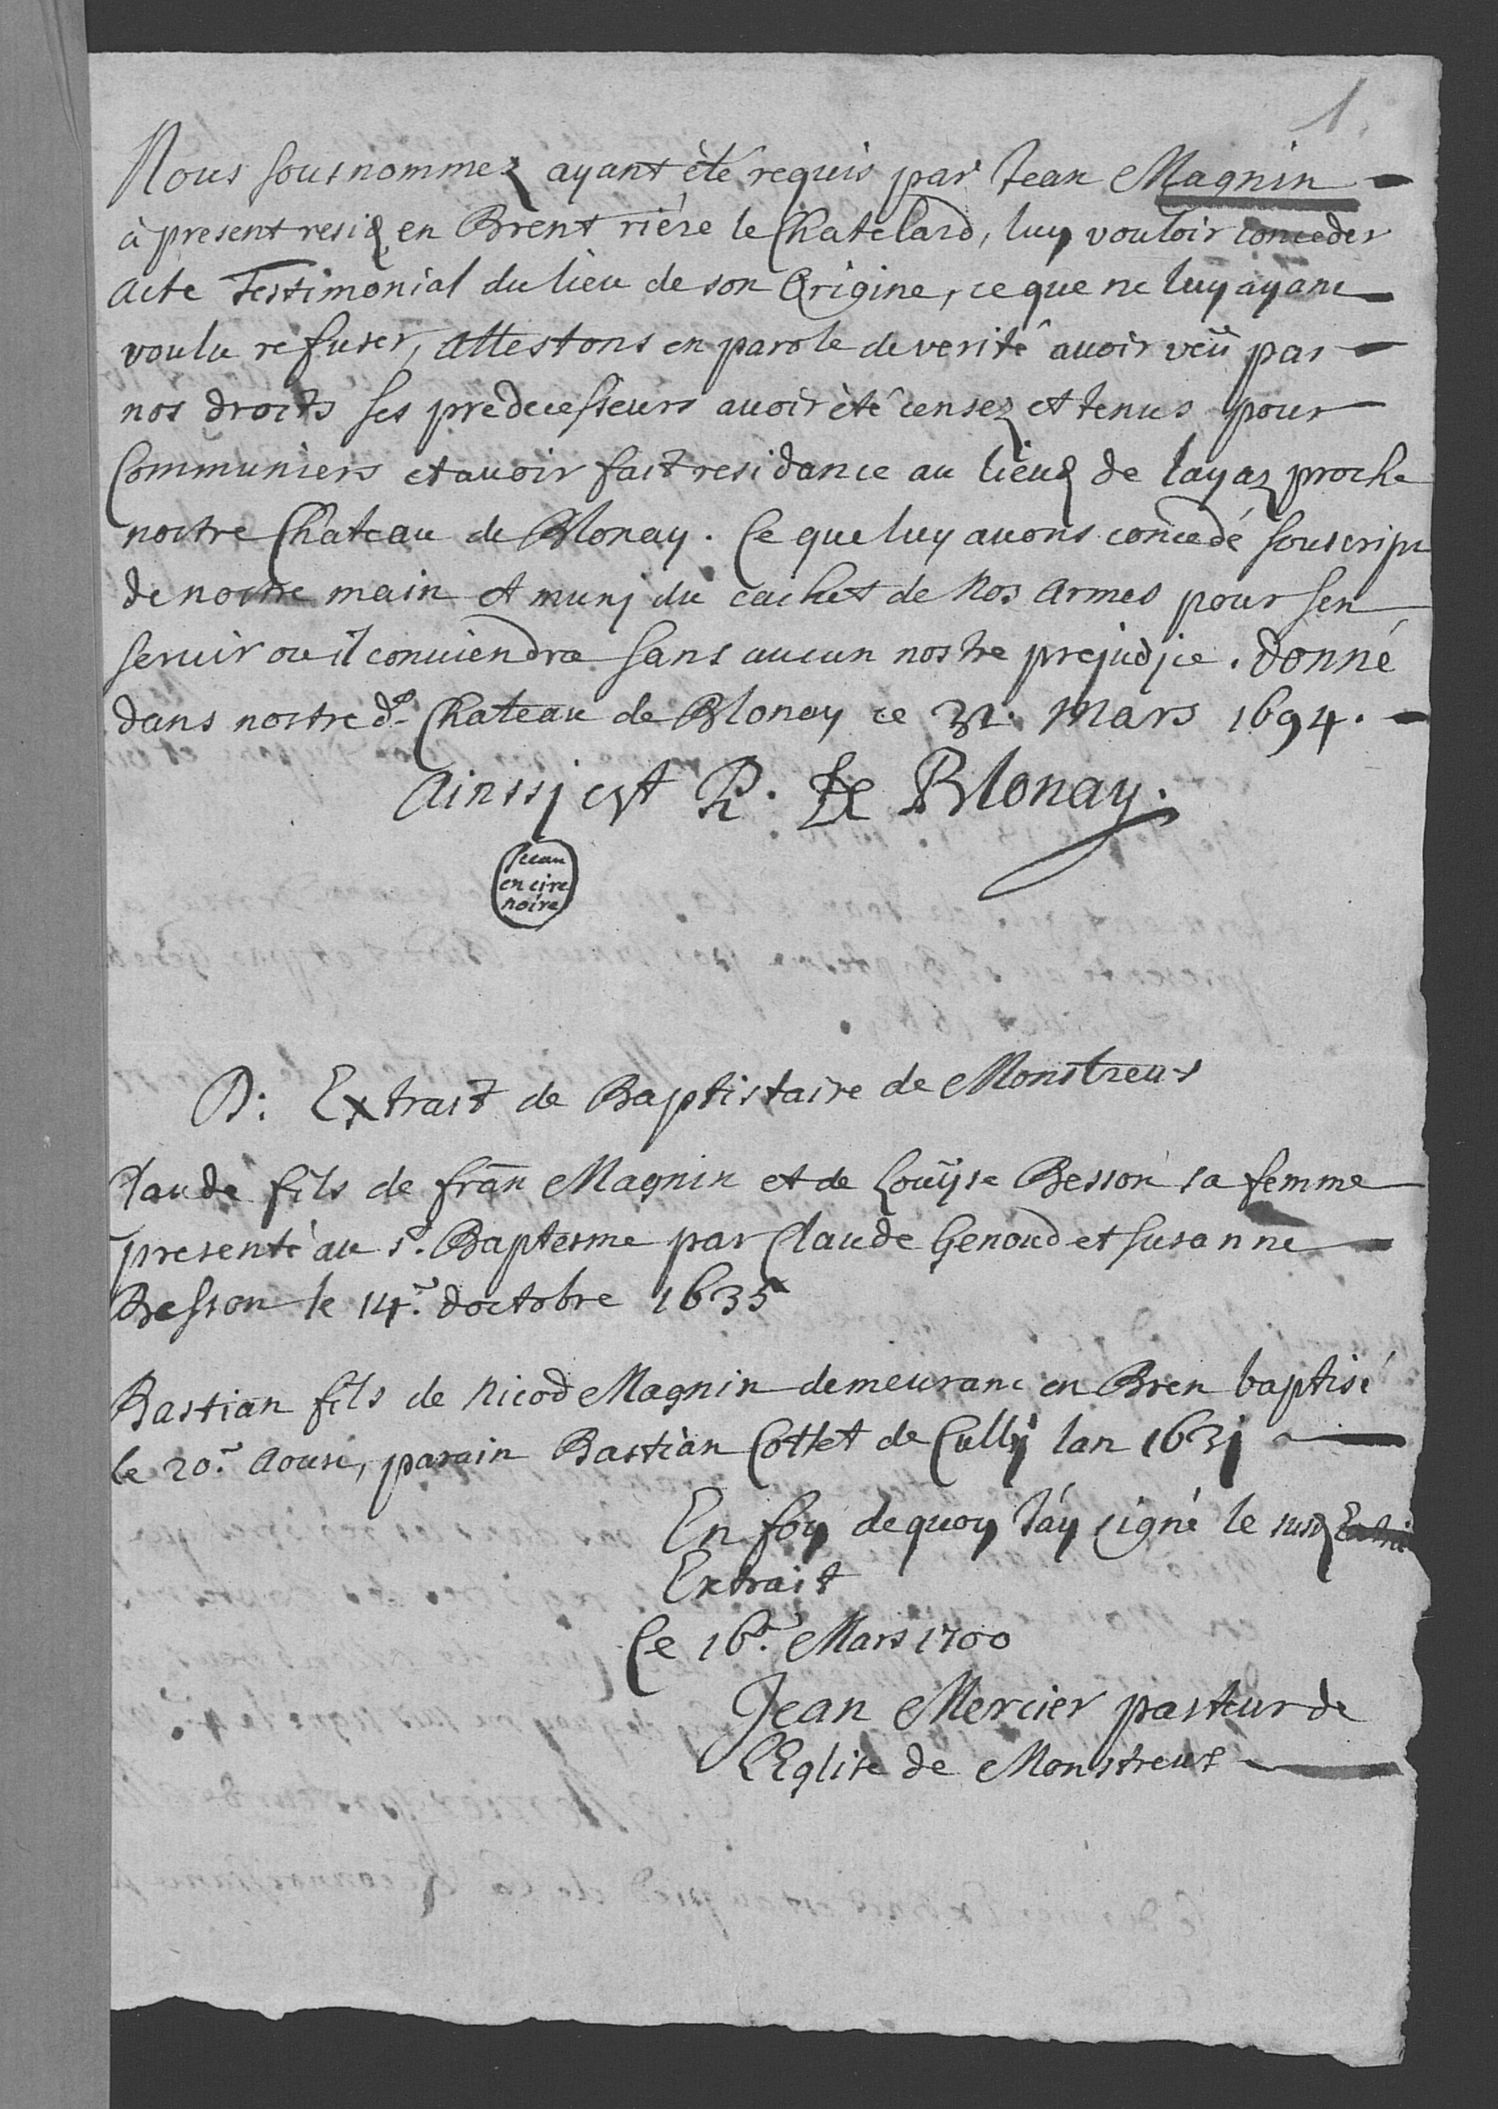 1.
Nous sousnommez ayant été requis par Jean Magnin
à present resid en Brent riére le Chatelard, luy vouloir conceder
acte Testimonial du lieu de son Origine, ce que ne luy ayant
voulu refuser, attestons en parole de verité avoir veü par
nos droits ses predecesseurs avoir été censez et tenus pour
Communiers et avoir fait residance au lieud de layaz proche
nostre Chateau de Blonay. Ce que luy avons concedé souscript
de nostre main et munj du cachet de Nos Armes pour sen
servir ou il conviendra sans aucun nostre prejudjce. donné
dans nostre dt Chateau de Blonay ce 31. Mars 1694.
Ainssj est P. De Blonay.
Sceau
en cire
noire
D: Extrait de Baptistaire de Monstreux
Claude fils de fran Magnin et de Louÿse Besson sa femme
presenté au St. Baptesme par Claude Genoud et Susanne
Besson le 14e. doctobre 1635
Bastian fils de Nicod Magnin demeurant en Bren baptisé
le 20e. Aoust, parain Bastian Cottet de Cullÿ lan 1631
En foy dequoy Jáy signé le susd
Extrait
Ce 16e. Mars 1700
Jean Mercier pasteur de
LEglise de Monstreux